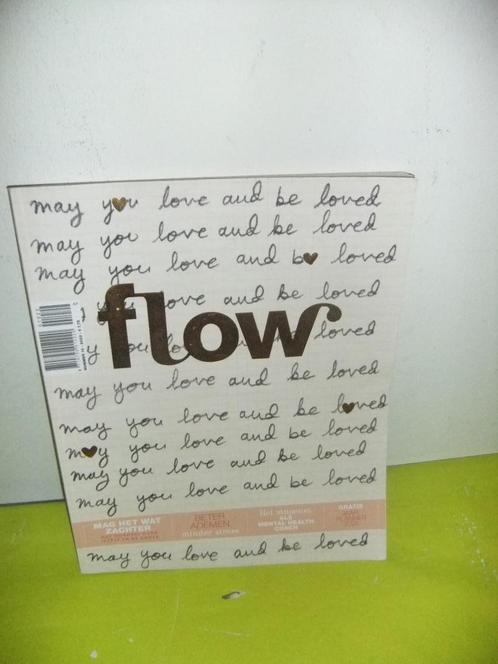 may you love and be loved
may you love and be loved
may you love and be loved
you love and be loved
flow
you love and be loved
may you love and be loved
may you love and be loved
may you love and be loved
may you love and be loved
may you love and be loved
MAG HET WAT ZACHTER
BETER ADEMEN
minder stress
Het museum
ALS
MENTAL HEALTH
COACH
GRATIS
may you love and be loved